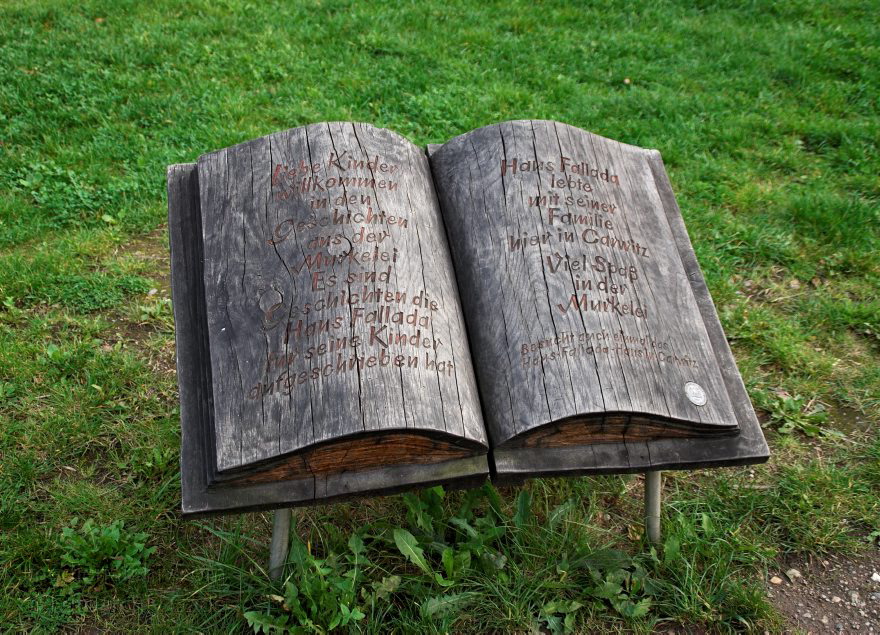 liebe Kinder
willkommen
in den
Geschichten
aus der
Murkelei
Es sind
Geschichten die
Hans Fallada
für seine Kinder
aufgeschrieben hat
Hans Fallada
lebte
mit seiner
Familie
hier in Carwitz
Viel Spaß
in der
Murkelei
Besucht auch einmal das
Hans-Fallada-Haus in Carwitz